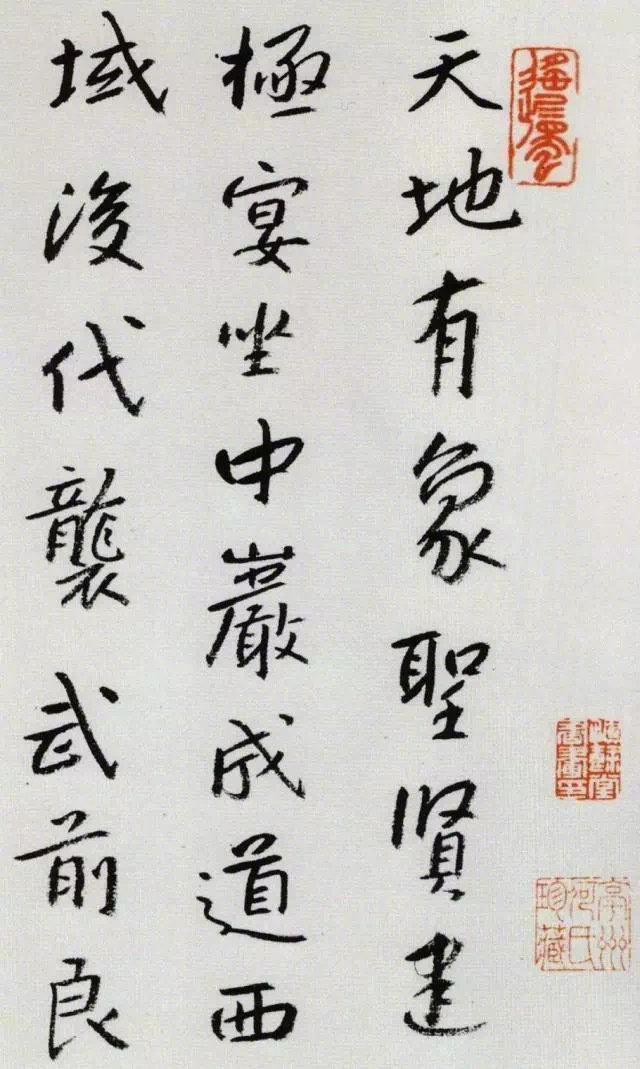 天地有象聖賢建
極宴坐中巖成道西
域後代襲武前良